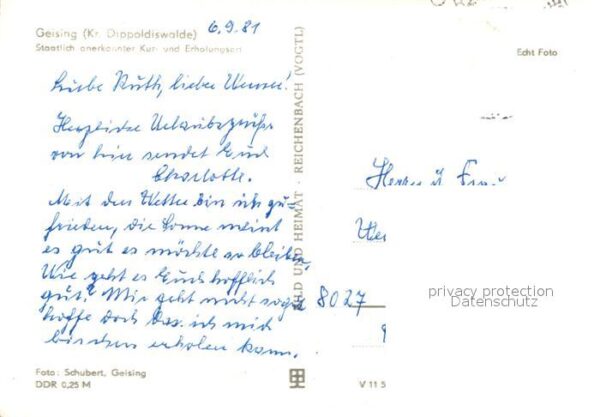 Geising (Kr. Dippoldiswalde)
Staatlich anerkannter Kur- und Erholungsort
6.9.81
Echt Foto
Liebe Ruth, lieber Werner!
Herzliche Urlaubsgrüße
von hier sendet Euch
Charlotte.
Mit dem Wetter bin ich zu-
frieden, die Sonne meint
es gut es möchte so bleiben.
Wie geht es Euch hoffentlich
gut? Mir geht nicht so gut
hoffe doch das ich mich
bischen erholen kann.
BILD UND HEIMAT · REICHENBACH (VOGTL)
Herrn u Frau
Wer
8027
privacy protection
Datenschutz
Foto: Schubert, Geising
DDR 0,25 M
V 11 5